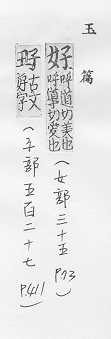 玉篇
好 呼道切美也 呼導切愛也 (女部三十五 P.73)
古文好字 (子部五百二十七 P.411)